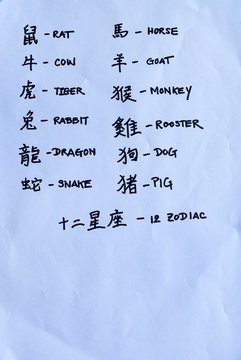 鼠 - RAT 馬 - HORSE
牛 - COW 羊 - GOAT
虎 - TIGER 猴 - MONKEY
兔 - RABBIT 雞 - ROOSTER
龍 - DRAGON 狗 - DOG
蛇 - SNAKE 猪 - PIG
十二星座 - 12 ZODIAC